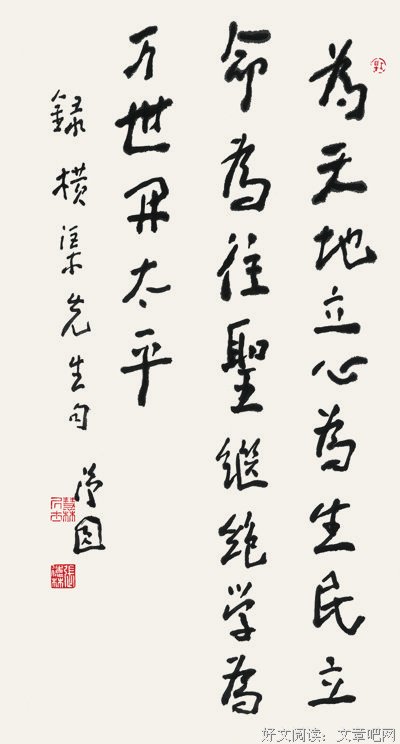 為天地立心為生民立
命為往聖繼絶学為
万世開太平
録橫渠先生句
好文阅读：文章吧网